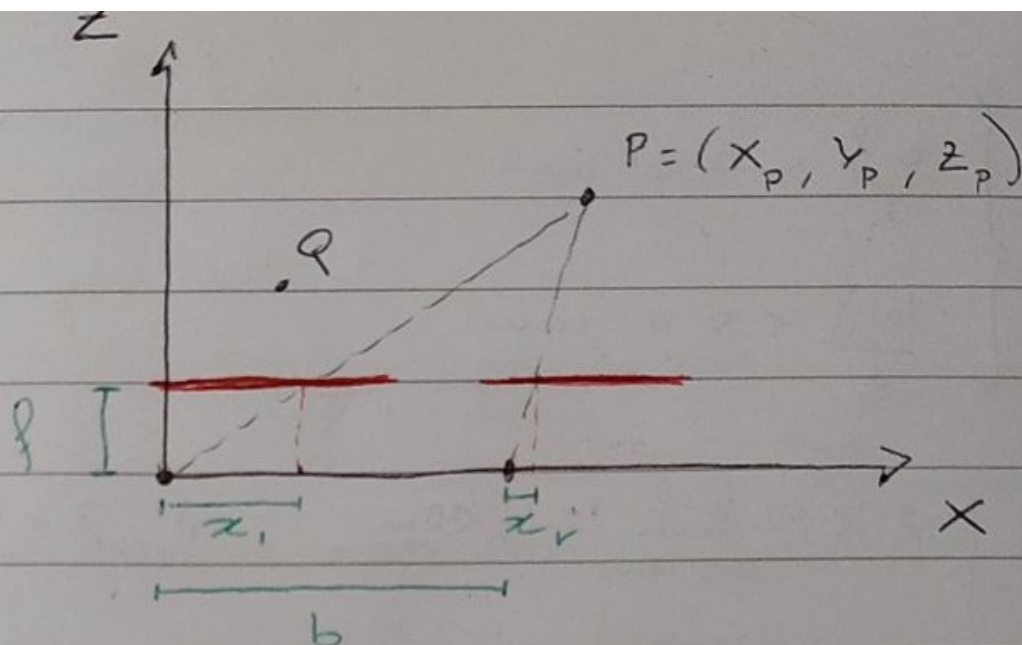 Z
P = (X_p, Y_p, Z_p)
Q
f
X
x_l
x_r
b